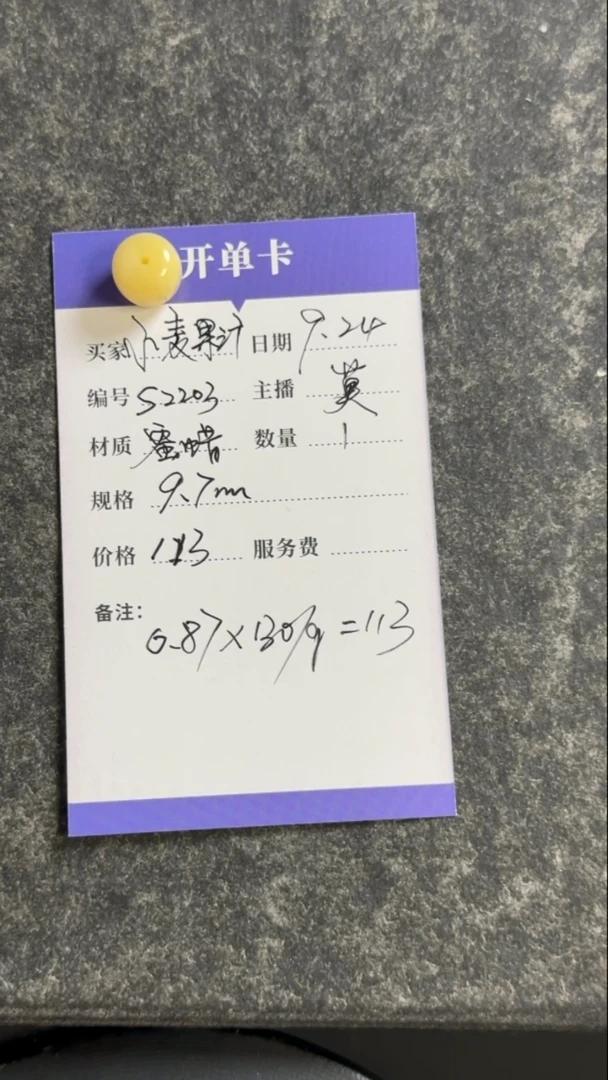 开单卡
买家 小麦果汁 日期 9.24
编号 S2203 主播 莫
材质 蜜蜡 数量 1
规格 9.7mm
价格 113 服务费
备注：
0.87×130/g=113